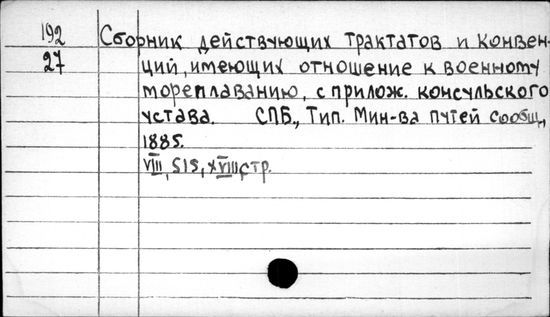 192 Сборник действующих трактатов и конвен-
27 ций, имеющих отношение к военному
мореплаванию, с прилож. консульского
устава. СПБ., Тип. Мин-ва путей сообщ.,
1885.
VIII, 515, XVIII стр.